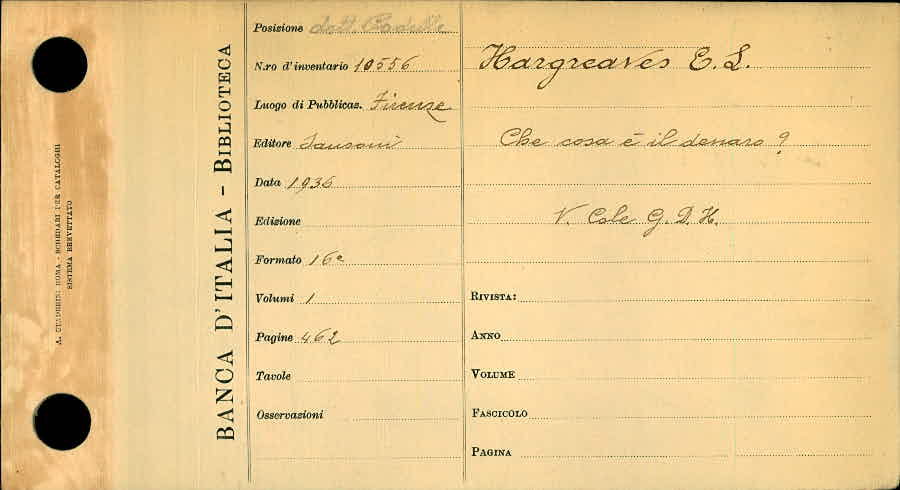 A. STADERINI ROMA - SCHEDARI PER CATALOGHI
SISTEMA BREVETTATO
BANCA D'ITALIA - BIBLIOTECA
Posizione dott.
N.ro d'inventario 10556
Luogo di Pubblicaz. Firenze
Editore Sansoni
Data 1936
Edizione
Formato 16°
Volumi 1
Pagine 462
Tavole
Osservazioni
Hargreaves E. L.
Che cosa è il denaro?
V. Cole G. D. H.
RIVISTA:
ANNO
VOLUME
FASCICOLO
PAGINA